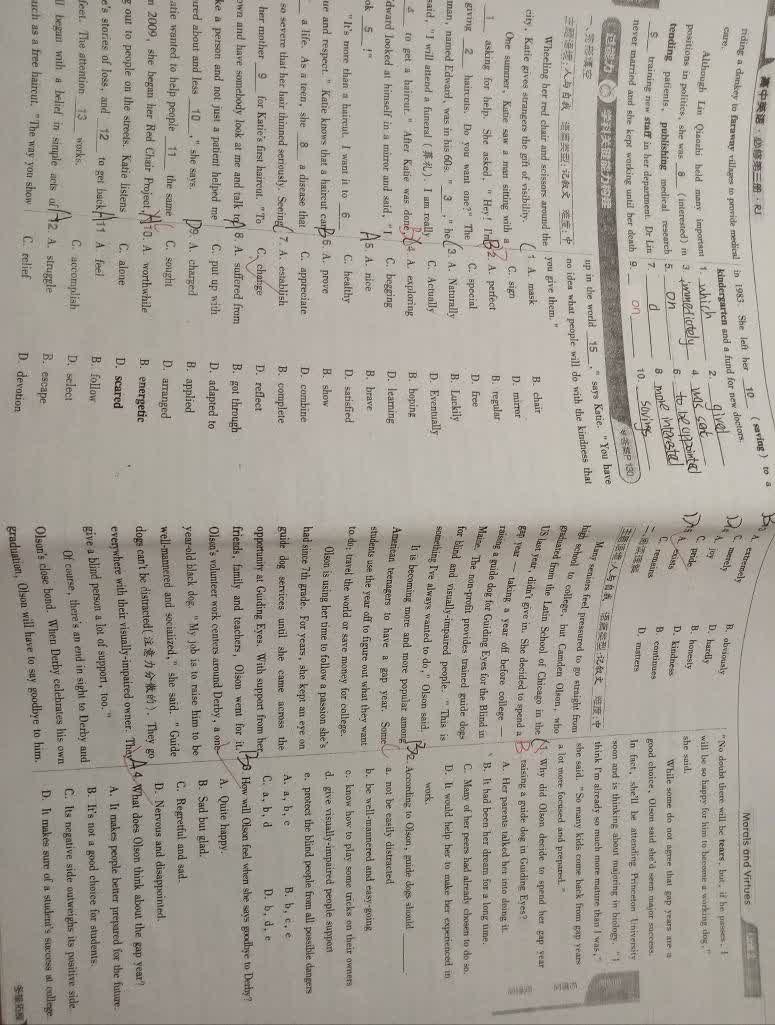 高中英语·必修第二册·RJ
riding a donkey to faraway villages to provide medical
care.
Although Lin Qiaozhi held many important
positions in politics, she was 8 (interested) in
tending patients, publishing medical research
9 training new staff in her department. Dr Lin
never married and she kept working until her death
in 1983. She left her 10 (saving) to a
kindergarten and a fund for new doctors.
1. which 2. gived
3. immediately 4. was set
5. on 6. to be appointed
7. d 8. more interested
9. on 10. saving
学科关键能力构建
答案P130
一、完形填空
主题语境:人与自我 语篇类型:记叙文 难度:中
Wheeling her red chair and scissors around the
city, Katie gives strangers the gift of visibility.
One summer, Katie saw a man sitting with a
1 asking for help. She asked, "Hey! I'm
giving 2 haircuts. Do you want one?" The
man, named Edward, was in his 60s. " 3 ," he
said, "I will attend a funeral (葬礼). I am really
4 to get a haircut." After Katie was done,
dward looked at himself in a mirror and said, "I
ok 5 !"
"It's more than a haircut. I want it to 6
ue and respect." Katie knows that a haircut can
a life. As a teen, she 8 a disease that
so severe that her hair thinned seriously. Seeing
her mother 9 for Katie's first haircut. "To
own and have somebody look at me and talk to
ke a person and not just a patient helped me
ured about and less 10 ," she says.
atie wanted to help people 11 the same
n 2009, she began her Red Chair Project,
g out to people on the streets. Katie listens
e's stories of loss, and 12 to get back
feet. The attention 13 works.
ll began with a belief in simple acts of
uch as a free haircut. "The way you show
up in the world 15 ," says Katie. "You have
no idea what people will do with the kindness that
you give them."
C 1. A. mask B. chair
C. sign D. mirror
B 2. A. perfect B. regular
C. special D. free
C 3. A. Naturally B. Luckily
C. Actually D. Eventually
4. A. exploring B. hoping
C. begging D. learning
A 5. A. nice B. brave
C. healthy D. satisfied
B 6. A. prove B. show
C. appreciate D. combine
C 7. A. establish B. complete
C. change D. reflect
A 8. A. suffered from B. got through
C. put up with D. adapted to
D 9. A. charged B. applied
C. sought D. arranged
A 10. A. worthwhile B. energetic
C. alone D. scared
A 11. A. feel B. follow
C. accomplish D. select
A 12. A. struggle B. escape
C. relief D. devotion
Morals and Virtues
A. extremely B. obviously
C. merely D. hardly
A. joy B. honesty
C. pride D. kindness
A. exists B. continues
C. remains D. matters
二、阅读理解
主题语境:人与自我 语篇类型:记叙文 难度:中
Many seniors feel pressured to go straight from
high school to college, but Camden Olson, who
graduated from the Latin School of Chicago in the
US last year, didn't give in. She decided to spend a
gap year — taking a year off before college —
raising a guide dog for Guiding Eyes for the Blind in
Maine. The non-profit provides trained guide dogs
for blind and visually-impaired people. "This is
something I've always wanted to do," Olson said.
It is becoming more and more popular among
American teenagers to have a gap year. Some
students use the year off to figure out what they want
to do; travel the world or save money for college.
Olson is using her time to follow a passion she's
had since 7th grade. For years, she kept an eye on
guide dog services until she came across the
opportunity at Guiding Eyes. With support from her
friends, family and teachers, Olson went for it.
Olson's volunteer work centers around Derby, a one-
year-old black dog. "My job is to raise him to be
well-mannered and socialized," she said. "Guide
dogs can't be distracted(注意力分散的). They go
everywhere with their visually-impaired owner. They
give a blind person a lot of support, too."
Of course, there's an end in sight to Derby and
Olson's close bond. When Derby celebrates his own
graduation, Olson will have to say goodbye to him.
"No doubt there will be tears, but, if he passes, I
will be so happy for him to become a working dog,"
she said.
While some do not agree that gap years are a
good choice, Olson said she's seen major success.
In fact, she'll be attending Princeton University
soon and is thinking about majoring in biology. "I
think I'm already so much more mature than I was,"
she said. "So many kids come back from gap years
a lot more focused and prepared."
1. Why did Olson decide to spend her gap year
raising a guide dog in Guiding Eyes?
A. Her parents talked her into doing it.
B. It had been her dream for a long time.
C. Many of her peers had already chosen to do so.
D. It would help her to make her experienced in
work.
B 2. According to Olson, guide dogs should
a. not be easily distracted
b. be well-mannered and easy-going
c. know how to play some tricks on their owners
d. give visually-impaired people support
e. protect the blind people from all possible dangers
A. a, b, c B. b, c, e
C. a, b, d D. b, d, e
B 3. How will Olson feel when she says goodbye to Derby?
A. Quite happy.
B. Sad but glad.
C. Regretful and sad.
D. Nervous and disappointed.
A 4. What does Olson think about the gap year?
A. It makes people better prepared for the future.
B. It's not a good choice for students.
C. Its negative side outweighs its positive side.
D. It makes sure of a student's success at college